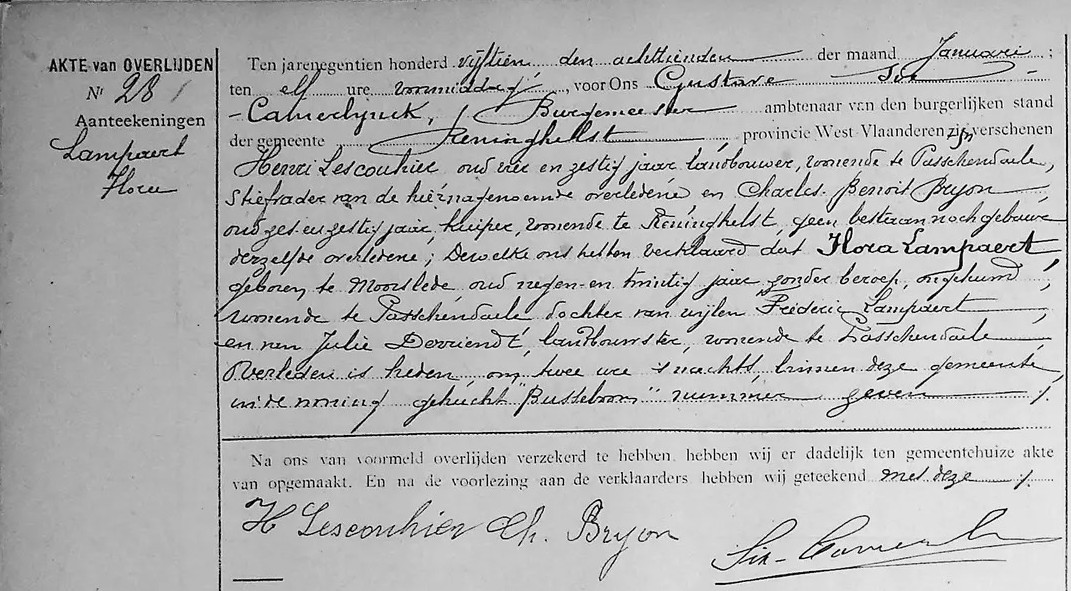 AKTE van OVERLIJDEN
Nr 28
Aanteekeningen
Lampaert
Flora
Ten jare negentien honderd vijftien den achttienden der maand Januari ;
ten elf ure voormiddag, voor Ons Gustave Six -
- Camerlynck, Burgemeester ambtenaar van den burgerlijken stand
der gemeente Reninghelst, provincie West-Vlaanderen zijn verschenen
Henri Lescouhier oud vier en zestig jaar, landbouwer, wonende te Passchendaele,
stiefvader van de hiernagenoemde overledene, en Charles Benoit Bryon
oud zes en zestig jaar, kuiper, wonende te Reninghelst, geen bestaan noch gebuur
derzelfde overledene ; Dewelke ons hebben verklaard dat Flora Lampaert
geboren te Moorslede oud negen-en twintig jaar zonder beroep, ongehuwd,
wonende te Passchendaele dochter van wijlen Fréderic Lampaert,
en van Julie Derriendt, landbouwster, wonende te Passchendaele
Overleden is heden, om twee ure 's nachts, binnen deze gemeente,
in de woning gehucht "Busseboom" nummer zeven
Na ons van voormeld overlijden verzekerd te hebben, hebben wij er dadelijk ten gemeentehuize akte
van opgemaakt. En na de voorlezing aan de verklaarders hebben wij geteekend met deze
H Lescouhier Ch. Bryon
Six-